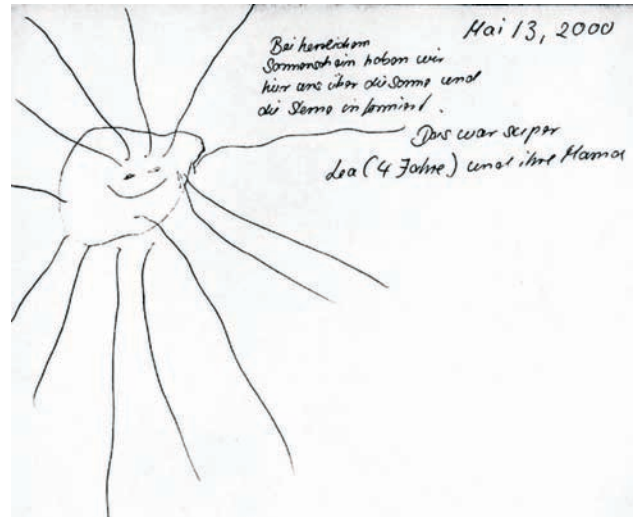 Mai 13, 2000
Bei herrlichem
Sonnenschein haben wir
hier uns über die Sonne und
die Sterne informiert.
Das war super
Lea (4 Jahre) und ihre Mama